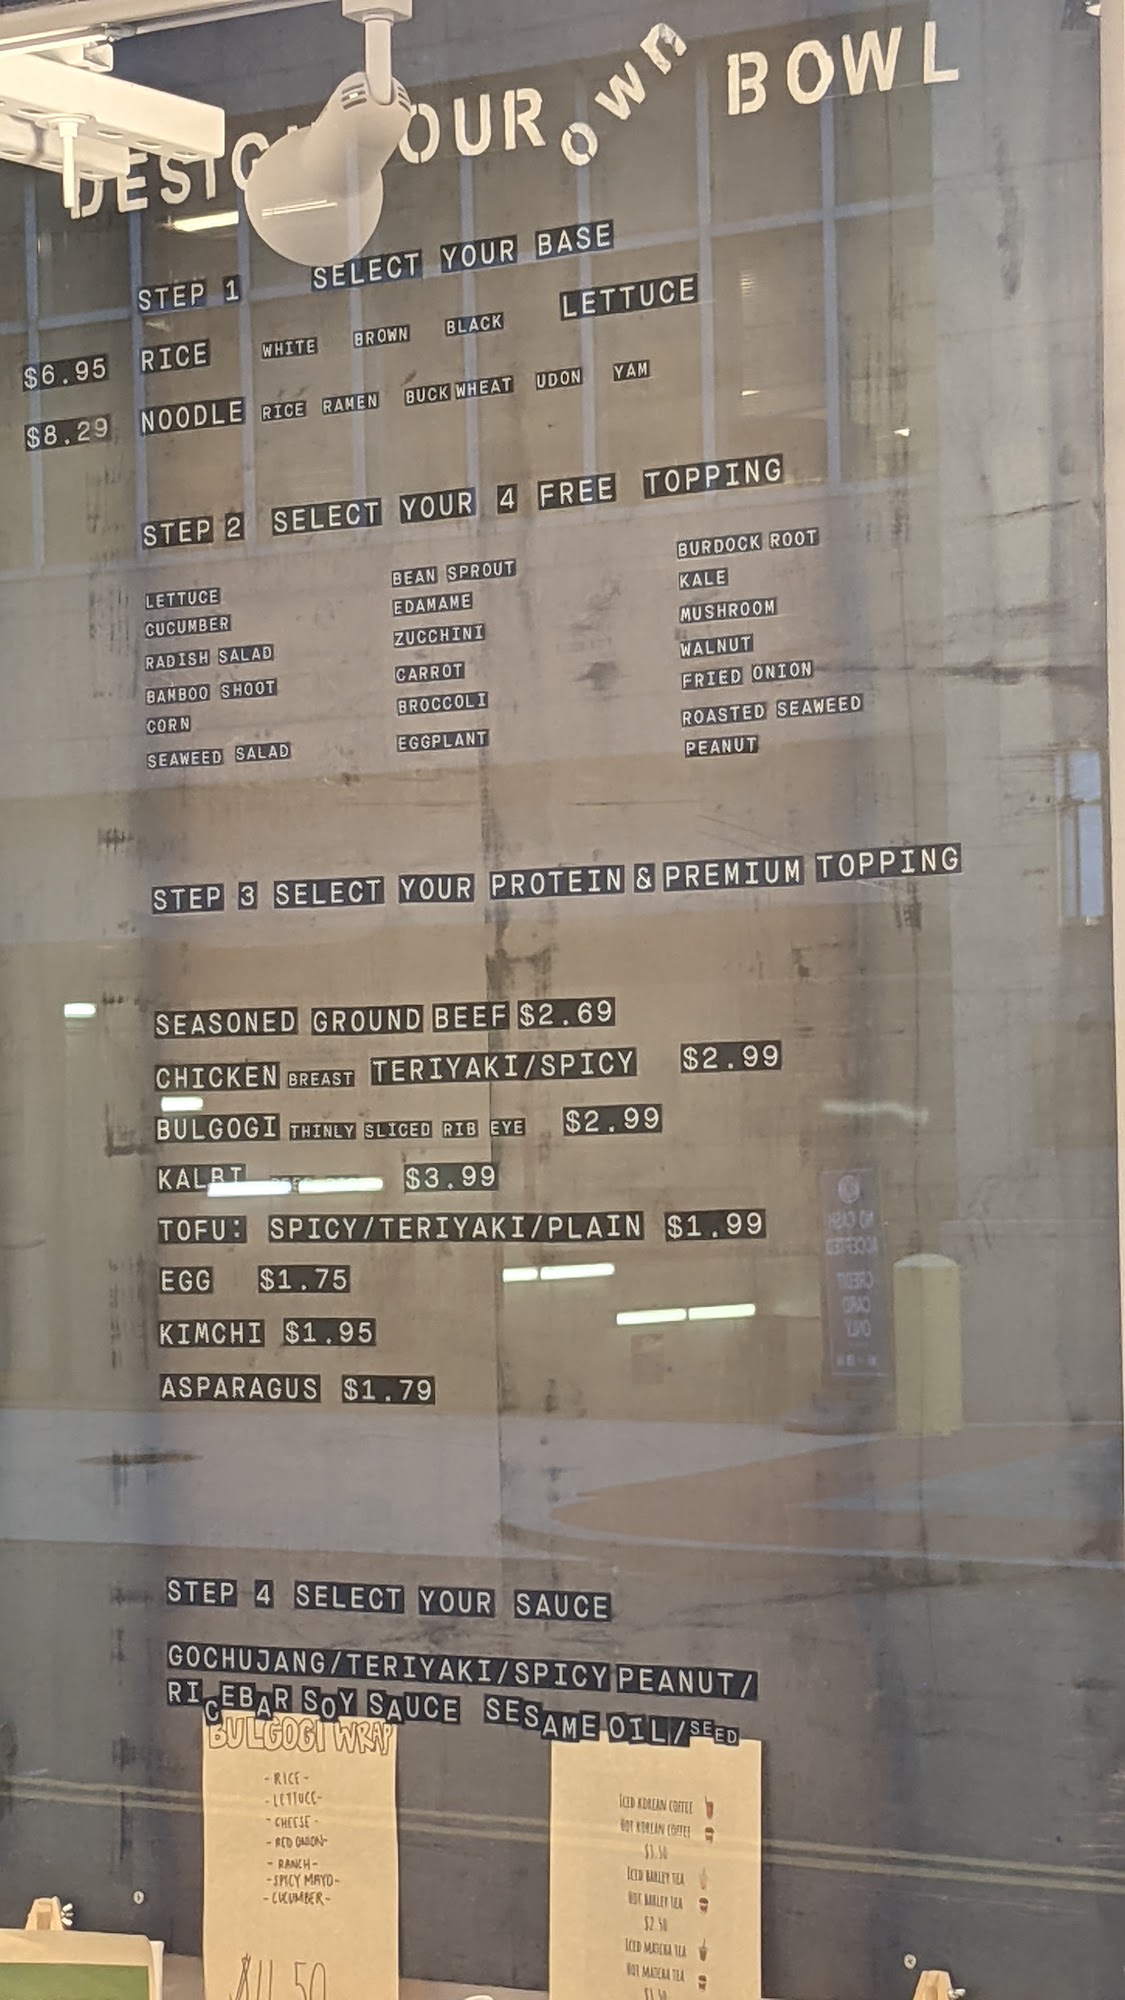 DESIG OUR own BOWL
STEP 1 SELECT YOUR BASE
$6.95 RICE WHITE BROWN BLACK LETTUCE
$8.29 NOODLE RICE RAMEN BUCKWHEAT UDON YAM
STEP 2 SELECT YOUR 4 FREE TOPPING
LETTUCE
CUCUMBER
RADISH SALAD
BAMBOO SHOOT
CORN
SEAWEED SALAD
BEAN SPROUT
EDAMAME
ZUCCHINI
CARROT
BROCCOLI
EGGPLANT
BURDOCK ROOT
KALE
MUSHROOM
WALNUT
FRIED ONION
ROASTED SEAWEED
PEANUT
STEP 3 SELECT YOUR PROTEIN & PREMIUM TOPPING
SEASONED GROUND BEEF $2.69
CHICKEN BREAST TERIYAKI/SPICY $2.99
BULGOGI THINLY SLICED RIB EYE $2.99
KALBI $3.99
TOFU: SPICY/TERIYAKI/PLAIN $1.99
EGG $1.75
KIMCHI $1.95
ASPARAGUS $1.79
NO CASH
ACCEPTED
CREDIT
CARD
ONLY
STEP 4 SELECT YOUR SAUCE
GOCHUJANG/TERIYAKI/SPICY PEANUT/
RICEBAR SOY SAUCE SESAME OIL/SEED
BULGOGI WRAP
-RICE-
-LETTUCE-
-CHEESE-
-RED ONION-
-RANCH-
-SPICY MAYO-
-CUCUMBER-
$11.50
ICED KOREAN COFFEE
HOT KOREAN COFFEE
$3.50
ICED BARLEY TEA
HOT BARLEY TEA
$2.50
ICED MATCHA TEA
HOT MATCHA TEA
$3.50